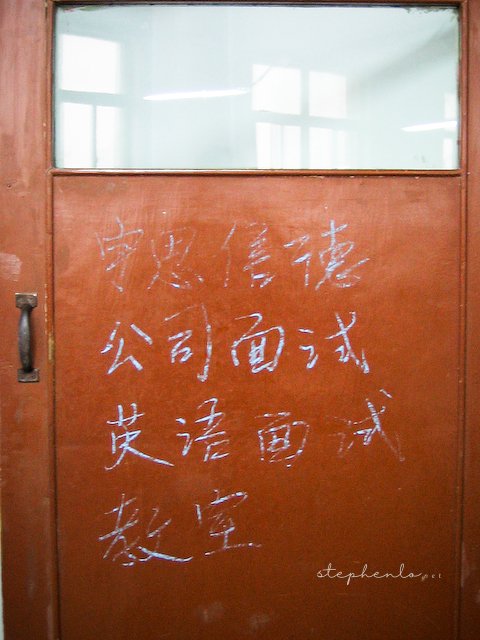 思信德
公司面试
英语面试
教室
stephenlo.net